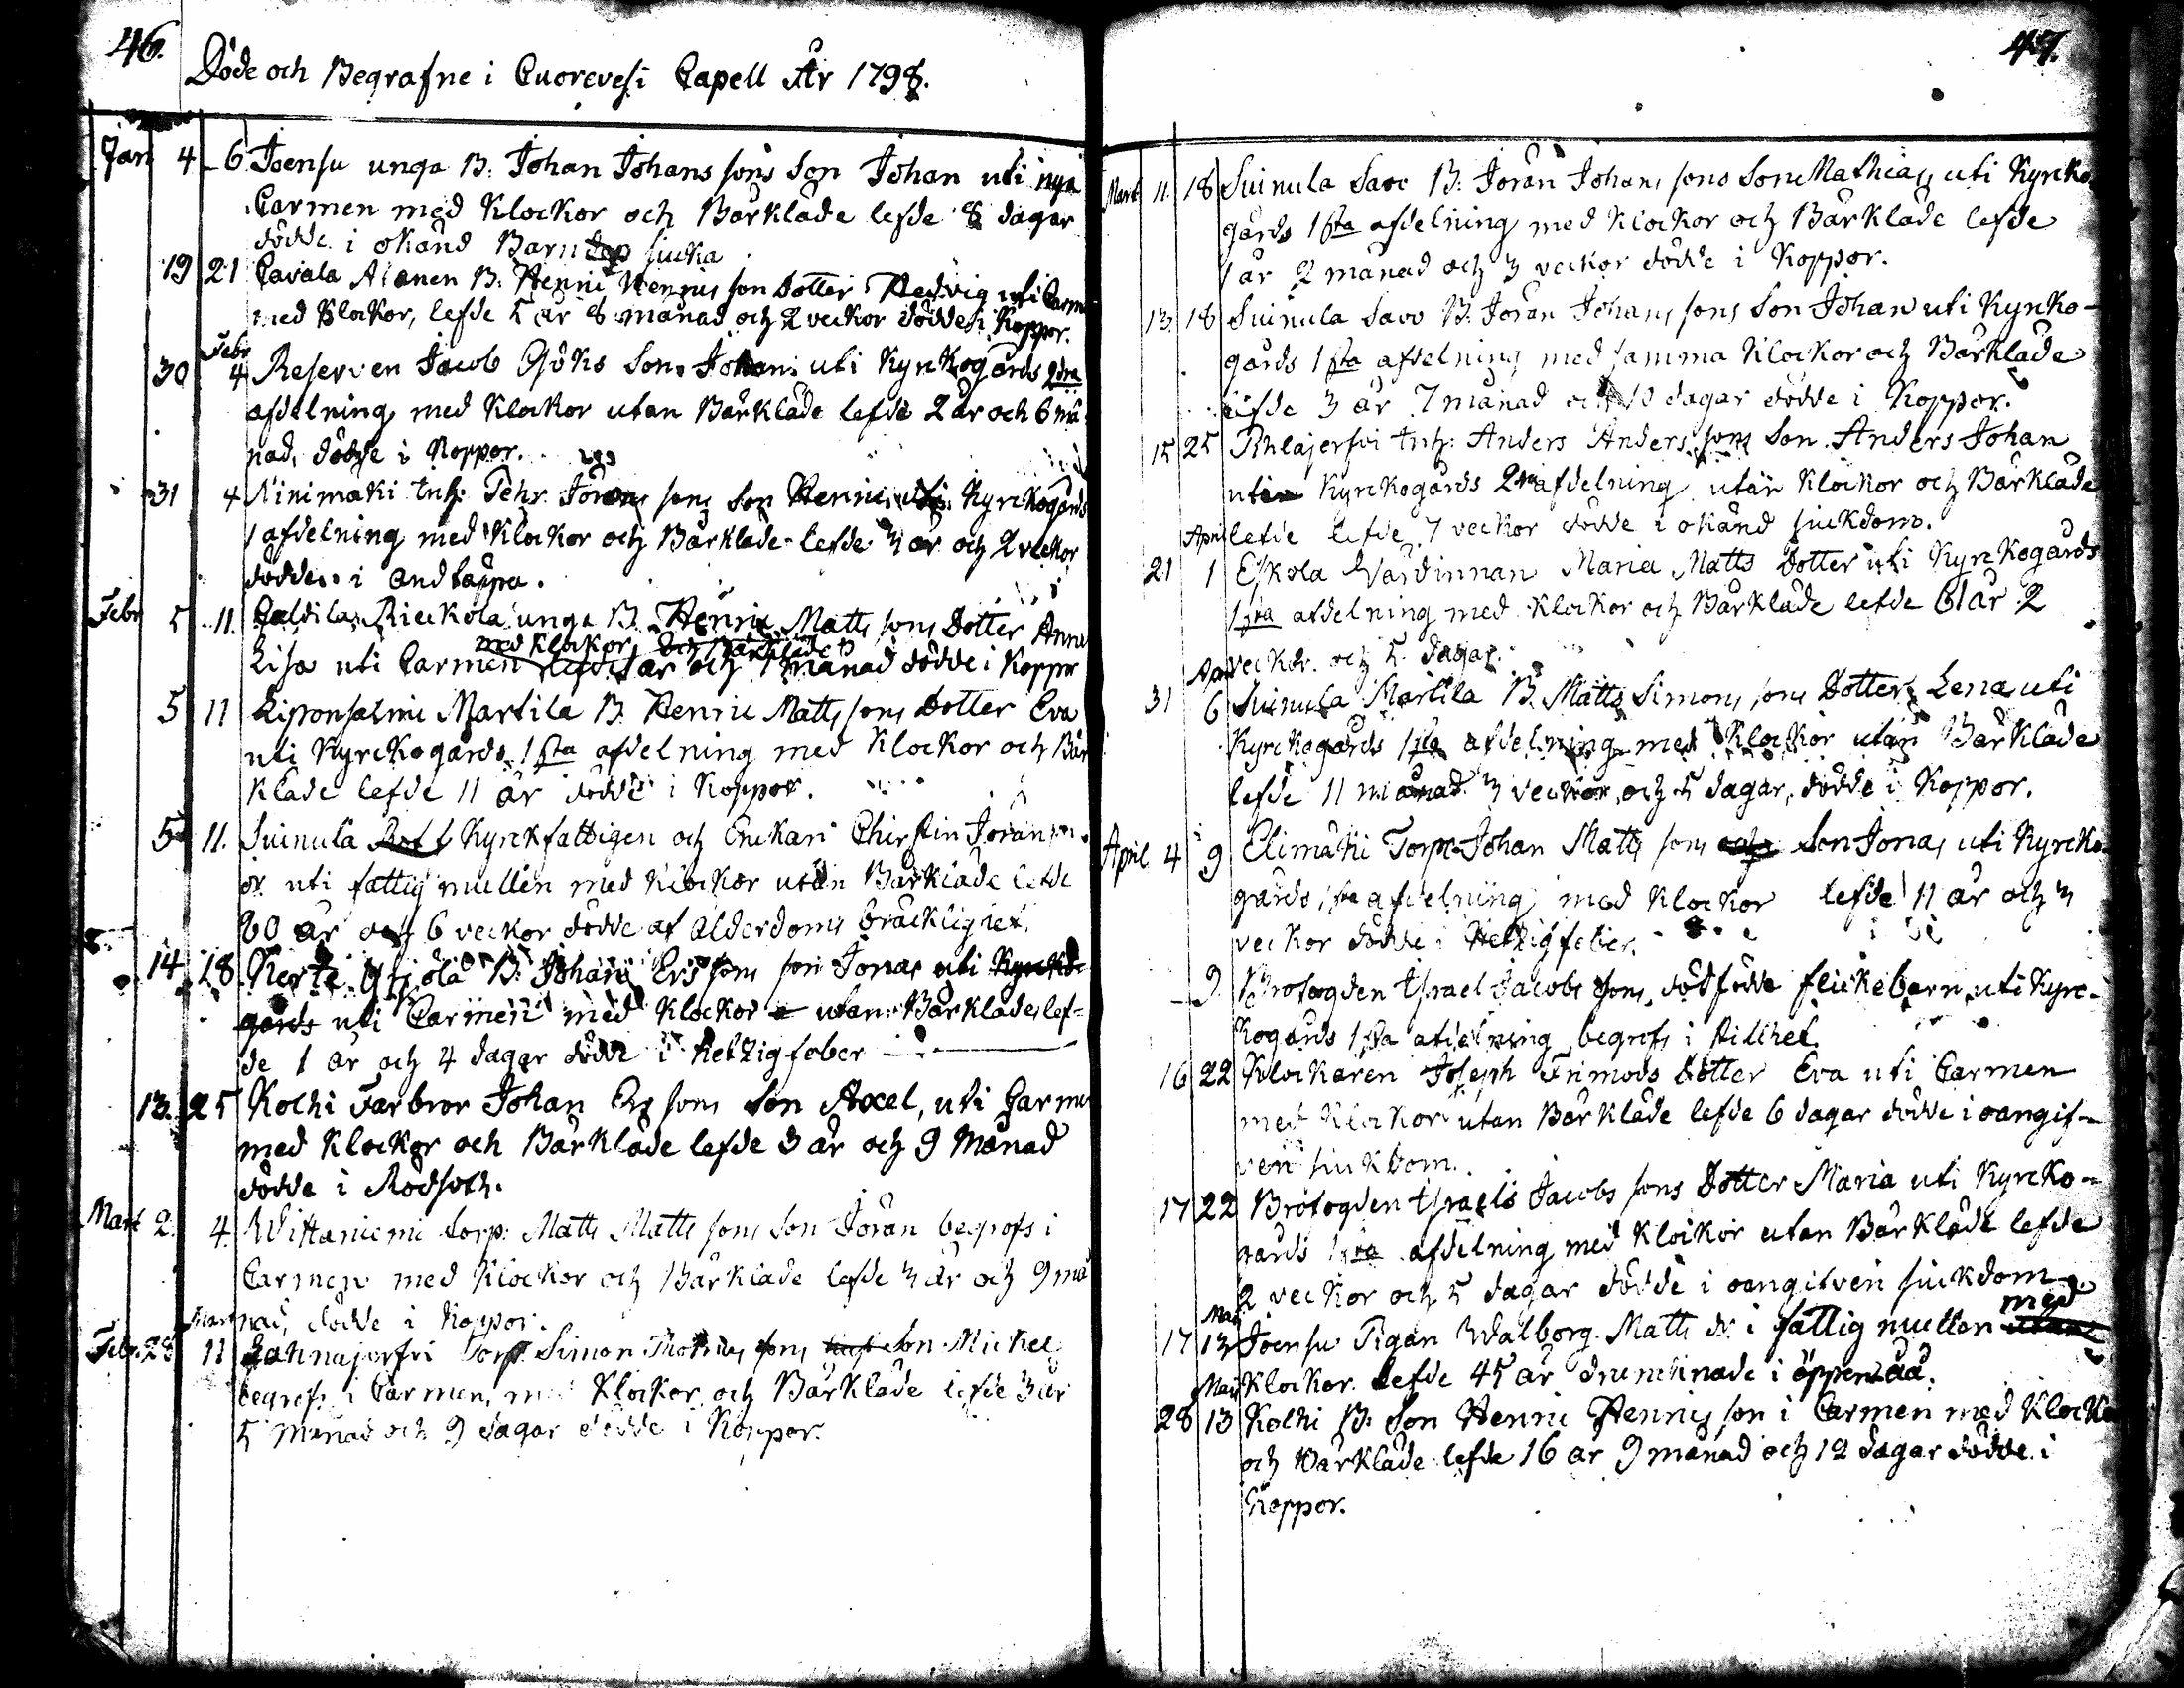 46.
Döde och Begrafne i Cuorevesi Capell År 1798.
Jan 4 6 Joensu unga B: Johan Johans sons Son Johan uti nya
Carmen med Klockor och Bårkläde lefde 8 dagar
dödde i okänd Barn siucka
19 21 Cavala Alanen B. Henric Henrics son Dotter Hedvig uti Carm
med Klockor, lefde 5 år 8 månad och 2 veckor dödde i Koppor.
Febr
30 4 Reserven Jacob Göks Son Johan uti Kyrkogårds 2dra
afdelning med Klockor utan Bårkläde lefde 2 år och 6 må-
nad, dödde i Koppor.
31 4 Ninimäki tnh: Pehr Jörans sons Son Henric uti Kyrckogårds
1 afdelning med Klockor och Bårkläde lefde 3 år och 2 veckor
dödde i andtäppa.
Febr 5 11. Caldila Rieckola unga B. Henric Matts sons Dotter Anna
med Klockor och Bårkläde
Lisa uti Carmen lefde år och 1 månad dödde i Koppor
5 11 Lipponsalmi Martila B. Henric Matts sons Dotter Eva
uti Kyrckogårds 1sta afdelning med Klockor och Bår
kläde lefde 11 år dödde i Koppor.
5 11. Suinula Rot f Kyrckfattigen och Enckan Christin Jörans
dr uti fattig mullen med Klockor utan Bårkläde lefde
80 år och 6 veckor dödde af ålderdoms bräcklighet.
14 18 Kerte Yljölä B: Johan Ers sons son Jonas uti Kyrcko
gårds uti Carmen med Klockor utan Bårkläde lef=
de 1 år och 4 dagar dödde i hetzig feber
13. 25 Kolhi Farbror Johan Ers sons Son Axel, uti Carmen
med Klockor och Bårkläde lefde 3 år och 9 Månad
dödde i Rödsoth.
Mart 2. 4. Wittaniemi torp: Matts Matts sons Son Jöran begrofs i
Carmen med Klockor och Bårkläde lefde 3 år och 9 må
Mart nad, dödde i Koppor.
Febr. 28 11 Lahnajerfvi Torp. Simon Thomas sons Son Mickel
begrofs i Carmen, med Klockor och Bårkläde lefde 3 år
5 månad och 9 dagar dödde i Koppor.
47.
Mart 11. 18 Suinula Savo B: Jöran Johans sons Son Mathias uti Kyrcko
gårds 1sta afdelning med Klockor och Bårkläde lefde
1 år 2 månad och 3 veckor dödde i Koppor.
13 18 Suinula Savo B. Jöran Johans sons Son Johan uti Kyrcko-
gårds 1sta afdelning med samma Klockor och Bårkläde
lefde 3 år 7 månad och 10 dagar dödde i Koppor.
15 25 tnh: Anders Anders sons Son Anders Johan
utan Kyrckogårds 2dra afdelning utan Klockor och Bårkläde
April lefde lefde 7 veckor dödde i okänd siuckdom.
21 1 Eskola Värdinnan Maria Matts Dotter uti Kyrckogårds
1sta afdelning med Klockor och Bårkläde lefde 61 år 2
Apr veckor och 5 dagar.
31 6 Suinula Martila B. Matts Simons sons Dotter Lena uti
Kyrckogårds 1sta afdelning med Klockor utan Bårkläde
lefde 11 månad 3 veckor och 5 dagar, dödde i Koppor.
April 4 9 Elimäki Torp. Johan Matts sons Son Jonas uti Kyrcko
gårds 1sta afdelning med Klockor lefde 11 år och 3
veckor dödde i Hetzig feber.
9 Brofogden Israel Jacobs sons dödfödde flickebarn uti Kyrc-
kogårds 1sta afdelning begrofs i stillhet.
16 22 Klockaren Joseph Frimods Dotter Eva uti Carmen
med Klockor utan Bårkläde lefde 6 dagar dödde i oangif-
ven siuckdom.
17 22 Brofogden Israels Jacobs sons Dotter Maria uti Kyrcko-
gårds 1sta afdelning med Klockor utan Bårkläde lefde
2 veckor och 5 dagar dödde i oangifven siuckdom
Maj
med
17 13 Joensu Pigan Walborg Matts dr i fattig mullen utan
Maj Klockor lefde 45 år drunknade i öppen åå.
28 13 Kolhi B: Son Henric Henrics son i Carmen med Klockor
och Bårkläde lefde 16 år 9 månad och 12 dagar dödde i
Koppor.